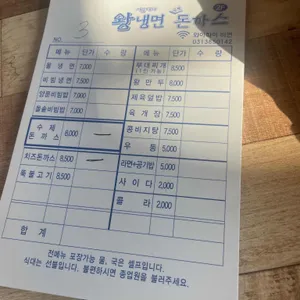 왕냉면 돈까스
와이파이 되면
0313850142
NO. 3
메뉴 단가 수량 메뉴 단가 수량
물냉면 7,000 부대찌개 (1인 가능) 8,500
비빔냉면 7,500 왕만두 6,000
양푼비빔밥 7,000 제육덮밥 7,500
돌솥비빔밥 7,000 육개장 7,500
수제돈까스 8,000 콩비지탕 7,500
우동 5,000
치즈돈까스 8,500 라면+공기밥 5,000
뚝불고기 8,500 사이다 2,000
콜라 2,000
합계
전메뉴 포장가능 물, 국은 셀프입니다.
식대는 선불입니다. 불편하시면 종업원을 불러주세요.